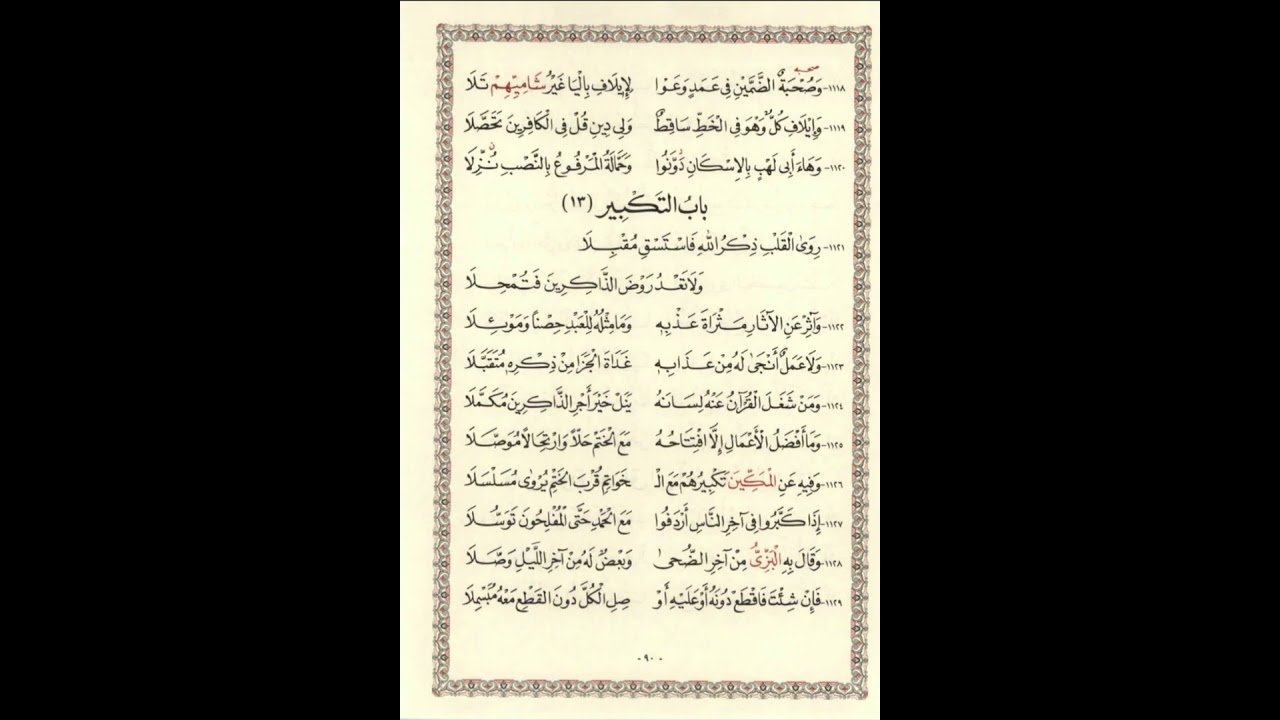 صحبة
١١١٨- وَصُحْبَةٌ الضَّمَّيْنِ فِي عَمَدٍ وَعَوْا لِإِيلَافِ بِالْيَا غَيْرُ شَامِيِّهِمْ تَلَا
١١١٩- وَإِيلَافِ كُلٌّ وَهْوَ فِي الْخَطِّ سَاقِطٌ وَلِي دِينِ قُلْ فِي الْكَافِرِينَ تَحَصَّلَا
١١٢٠- وَهَاءَ أَبِي لَهْبٍ بِالِاسْكَانِ دَوَّنُوا وَحَمَّالَةُ الْمَرْفُوعُ بِالنَّصْبِ نُزِّلَا
بابُ التَكْبِير (١٣)
١١٢١- رِوَى الْقَلْبِ ذِكْرُ اللهِ فَاسْتَسْقِ مُقْبِلَا
وَلَا تَعْدُ رَوْضَ الذَّاكِرِينَ فَتُمْحِلَا
١١٢٢- وَآثِرْ عَنِ الآثَارِ مَثْرَاةَ عَذْبِهِ وَمَا مِثْلُهُ لِلْعَبْدِ حِصْنًا وَمَوْئِلَا
١١٢٣- وَلَا عَمَلٌ أَنْجَى لَهُ مِنْ عَذَابِهِ غَدَاةَ الْجَزَا مِنْ ذِكْرِهِ مُتَقَبَّلَا
١١٢٤- وَمَنْ شَغَلَ الْقُرْآنُ عَنْهُ لِسَانَهُ يَنَلْ خَيْرَ أَجْرِ الذَّاكِرِينَ مُكَمَّلَا
١١٢٥- وَمَا أَفْضَلُ الْأَعْمَالِ إِلَّا افْتِتَاحُهُ مَعَ الْخَتْمِ حِلًّا وَارْتِحَالًا مُوَصَّلَا
١١٢٦- وَفِيهِ عَنِ الْمَكِّينَ تَكْبِيرُهُمْ مَعَ الْـ خَوَاتِمِ قُرْبَ الْخَتْمِ يُرْوَى مُسَلْسَلَا
١١٢٧- إِذَا كَبَّرُوا فِي آخِرِ النَّاسِ أَرْدَفُوا مَعَ الْحَمْدِ حَتَّى الْمُفْلِحُونَ تَوَسُّلَا
١١٢٨- وَقَالَ بِهِ الْبَزِّيُّ مِنْ آخِرِ الضُّحَى وَبَعْضٌ لَهُ مِنْ آخِرِ اللَّيْلِ وَصَّلَا
١١٢٩- فَإِنْ شِئْتَ فَاقْطَعْ دُونَهُ أَوْ عَلَيْهِ أَوْ صِلِ الْكُلَّ دُونَ الْقَطْعِ مَعْهُ مُبَسْمِلَا
- ٩٠ -